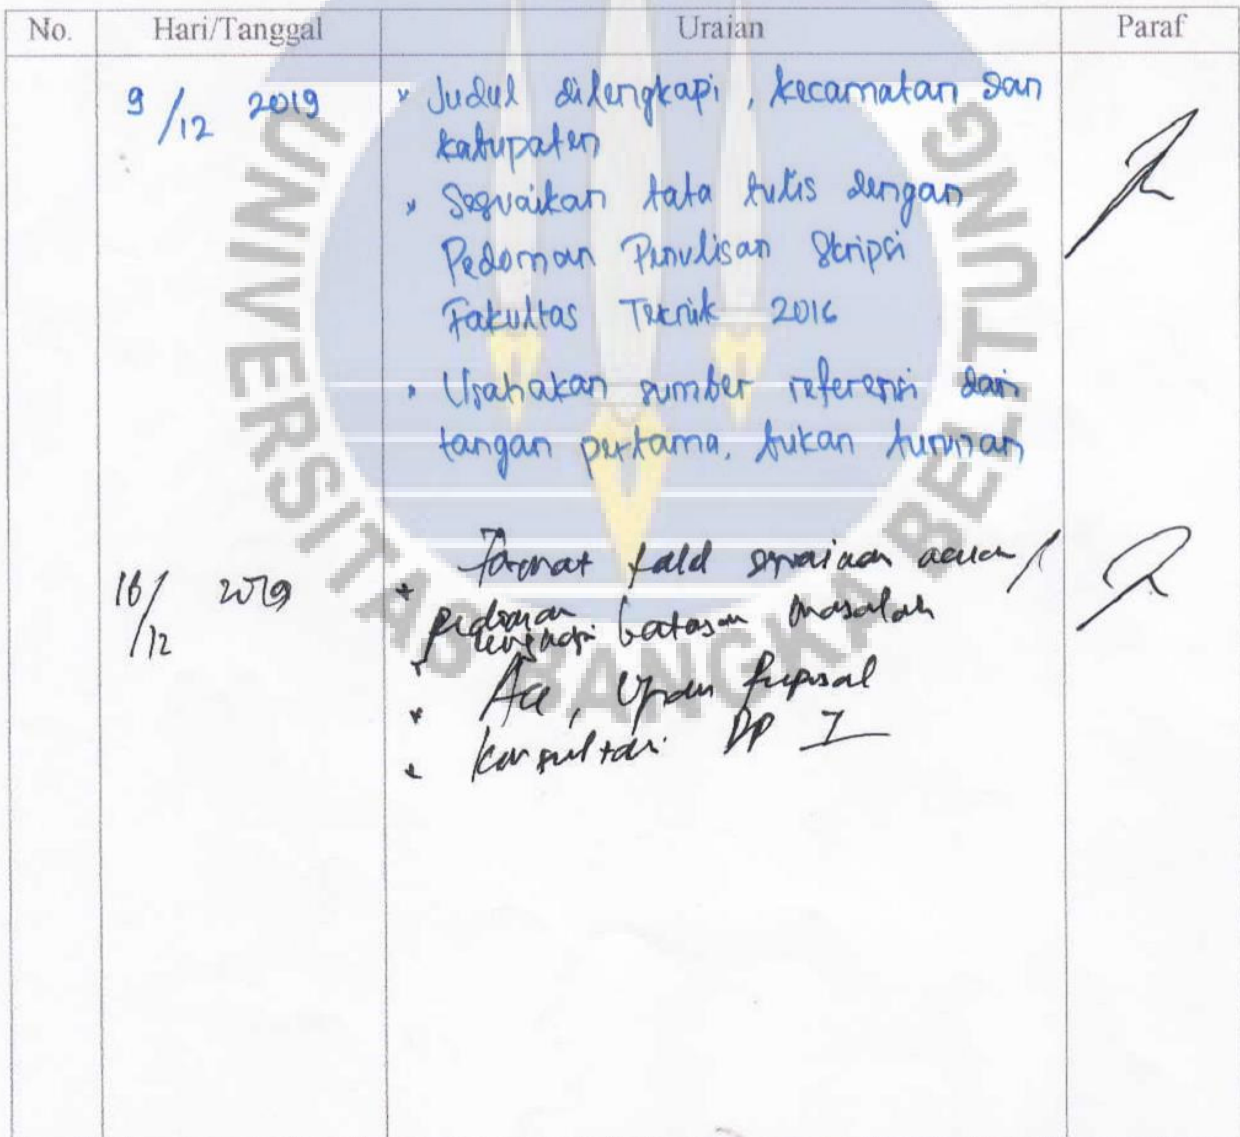 No. Hari/Tanggal Uraian Paraf
9/12 2019 * Judul dilengkapi, kecamatan dan
kabupaten
* Sesuaikan tata tulis dengan
Pedoman Penulisan Skripsi
Fakultas Teknik 2016
* Usahakan sumber referensi dari
tangan pertama, bukan turunan
16/12 2019 * Format sesuaikan acuan /
pedoman
* lengkapi batasan masalah
* Acc, Ujian proposal
* Konsultasi DP I
UNIVERSITAS BANGKA BELITUNG